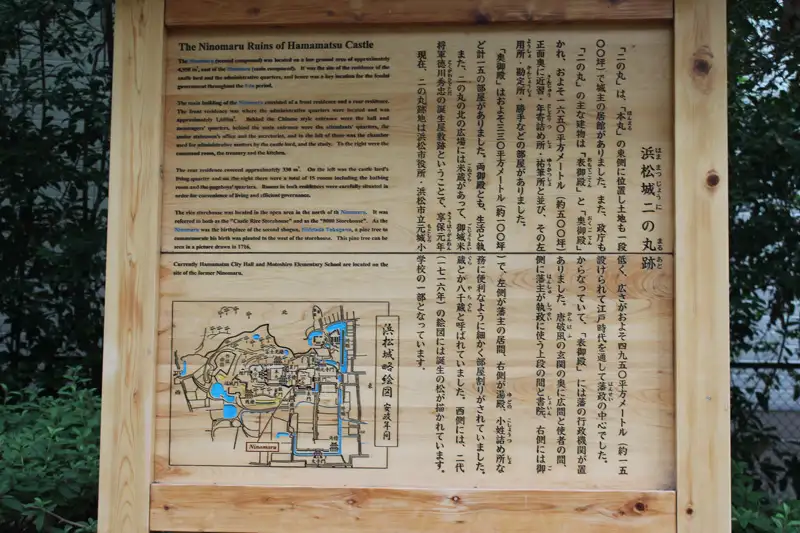 The Ninomaru Ruins of Hamamatsu Castle
The Ninomaru (second compound) was located on a low ground area of approximately
4,950 m², east of the Honmaru (main compound). It was the site of the residence of the
castle lord and the administrative quarters, and hence was a key location for the feudal
government throughout the Edo period.
The main building of the Ninomaru consisted of a front residence and a rear residence.
The front residence was where the administrative quarters were located and was
approximately 1,650m². Behind the Chinese style entrance were the hall and
messengers' quarters, behind the main entrance were the attendants' quarters, the
senior statesmen's office and the secretaries, and to the left of these was the chamber
used for administrative matters by the castle lord, and the study. To the right were the
command room, the treasury and the kitchen.
The rear residence covered approximately 330 m². On the left was the castle lord's
living quarter and on the right there were a total of 15 rooms including the bathing
room and the pageboys' quarters. Rooms in both residences were carefully situated in
order for convenience of living and efficient governance.
The rice storehouse was located in the open area in the north of the Ninomaru. It was
referred to both as the "Castle Rice Storehouse" and as the "8000 Storehouse". As the
Ninomaru was the birthplace of the second shogun, Hidetada Tokugawa, a pine tree to
commemorate his birth was planted to the west of the storehouse. This pine tree can be
seen in a picture drawn in 1716.
Currently Hamamatsu City Hall and Motoshiro Elementary School are located on the
site of the former Ninomaru.
浜松城二の丸跡
「二の丸」は、「本丸」の東側に位置し土地も一段低く、広さがおよそ四九五〇平方メートル(約一五
〇〇坪)で城主の居館がありました。また、政庁も設けられて江戸時代を通して藩政の中心でした。
「二の丸」の主な建物は「表御殿」と「奥御殿」からなっていて、「表御殿」には藩の行政機関が置
かれ、およそ一六五〇平方メートル(約五〇〇坪)ありました。唐破風の玄関の奥に広間と使者の間、
正面奥に近習・年寄詰め所・祐筆所と並び、その左側に藩主が執政に使う上段の間と書院、右側には御
用所・勘定所・勝手などの部屋がありました。
「奥御殿」はおよそ三三〇平方メートル(約一〇〇坪)で、左側が藩主の居間、右側が湯殿、小姓詰め所な
ど計一五の部屋がありました。両御殿とも、生活と執務に便利なように細かく部屋割りがされていました。
また、二の丸の北の広場には米蔵があって、御城米蔵とか八千蔵と呼ばれていました。西側には、二代
将軍徳川秀忠の誕生屋敷跡ということで、享保元年(一七二六年)の絵図には誕生の松が描かれています。
現在、二の丸跡地は浜松市役所・浜松市立元城小学校の一部となっています。
浜松城略絵図 安政年間
北
東
西
Ninomaru